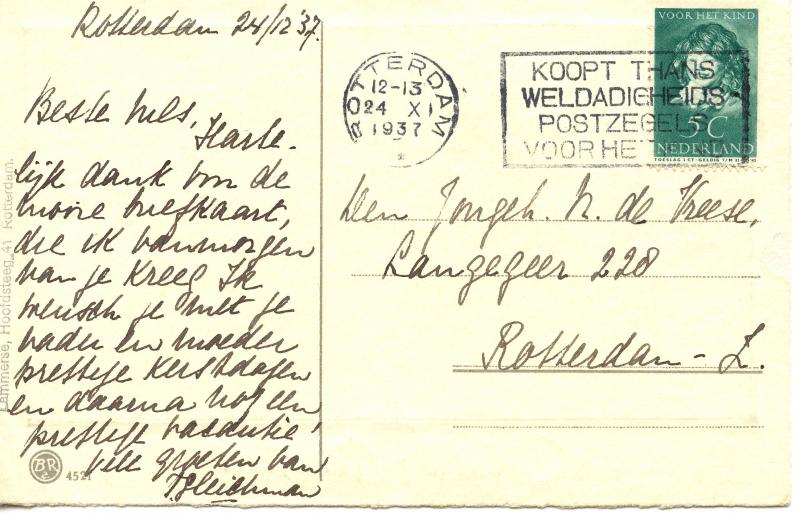 Rotterdam 24/12 '37.
Beste Nels,
Harte-
lijk dank von de
mooie briefkaart,
die ik vanmorgen
van je kreeg Ik
wensch je met je
vader en moeder
prettige Kerstdagen
en daarna nog een
prettige vacantie!
Vele groeten van
ROTTERDAM
12-13
24 XI
1937
KOOPT THANS
WELDADIGHEIDS-
POSTZEGELS
VOOR HET
VOOR HET KIND
5 C
NEDERLAND
Den Jongeh. N. de Vreese,
Langegeer 228
Rotterdam-Z.
Lammerse, Hoofdsteeg 41 Rotterdam.
BR
4521